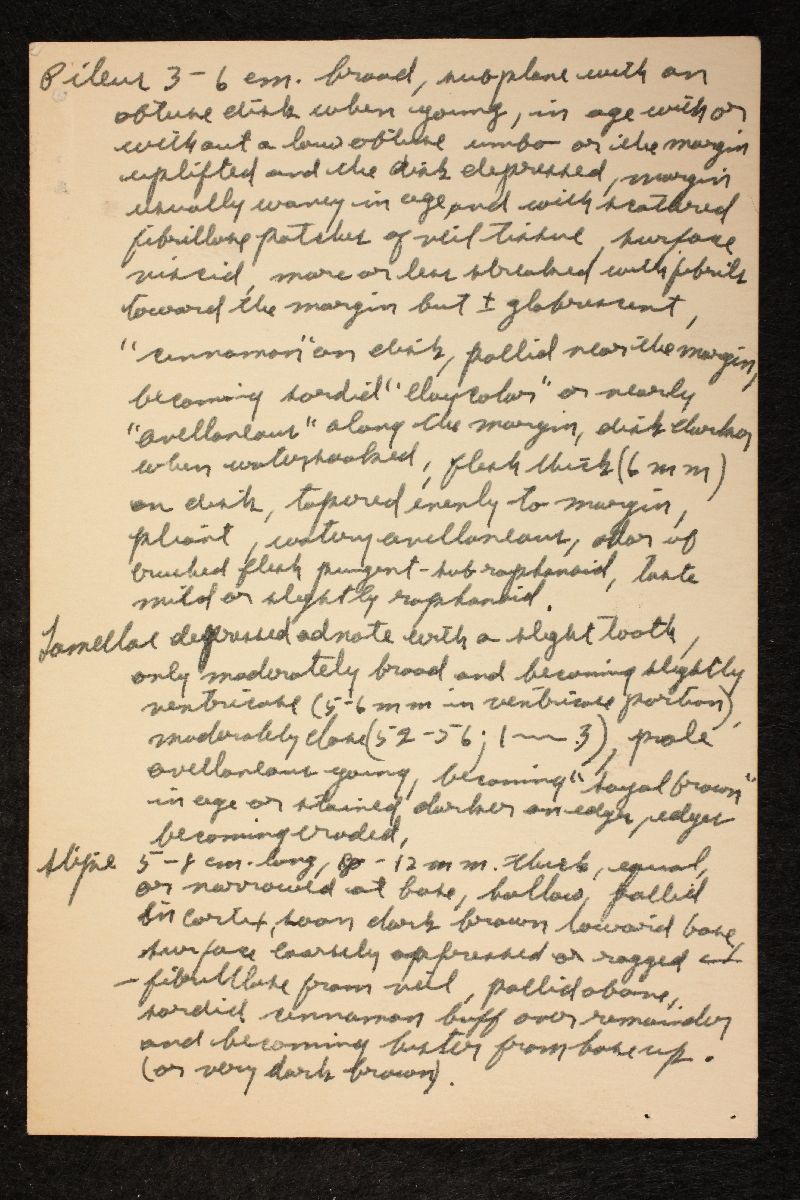 Pileus 3-6 cm. broad, subplane with an
obtuse disk when young, in age with or
without a low obtuse umbo or the margin
uplifted and the disk depressed, margin
usually wavy in age and with scattered
fibrillose patches of veil tissue, surface
viscid, more or less streaked with fibrils
toward the margin but ± glabrescent,
"cinnamon" on disk, pallid near the margin,
becoming sordid "clay color" or nearly
"avellaneous" along the margin, disk darker
when watersoaked, flesh thick (6 mm)
on disk, tapered evenly to margin,
pliant, watery avellaneous, odor of
crushed flesh pungent-subraphanoid, taste
mild or slightly raphanoid.
Lamellae depressed adnate with a slight tooth,
only moderately broad and becoming slightly
ventricose (5-6 mm in ventricose portion),
moderately close (52-56; 1—3), pale
avellaneous young, becoming "sayal brown"
in age or stained darker on edge, edges
becoming eroded,
stipe 5-8 cm. long, 8-12 mm. thick, equal,
or narrowed at base, hollow, pallid
in cortex, soon dark brown toward base,
surface coarsely appressed or ragged
-fibrillose from veil, pallid above,
sordid cinnamon buff over remainder
and becoming bister from base up.
(or very dark brown).